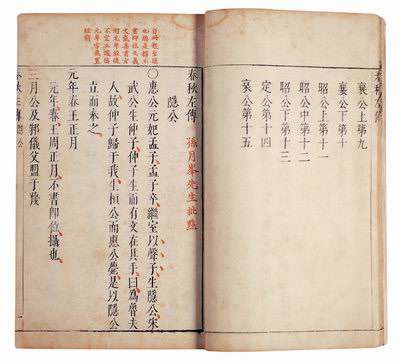 春秋左傳
襄公上第九
襄公下第十
昭公上第十一
昭公中第十二
昭公下第十三
定公第十四
哀公第十五
春秋左傳 孫月峯先生批點
隱公
○惠公元妃孟子孟子卒繼室以聲子生隱公宋
武公生仲子仲子生而有文在其手曰為魯夫
人故仲子歸于我生桓公而惠公薨是以隱公
立而奉之
元年春王正月
元年春王周正月不書卽位攝也
三月公及邾儀父盟于蔑
春秋左傳 隱公